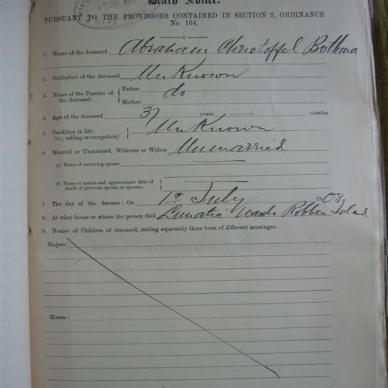 Death Notice.
PURSUANT TO THE PROVISIONS CONTAINED IN SECTION 9, ORDINANCE
No 104.
1. Name of the deceased Abraham Christoffel Bothma
2. Birthplace of the deceased Unknown
3. Name of the Parents of the deceased. Father do
Mother
4. Age of the deceased 37 years months
5. Condition in life (i.e., calling or occupation) Unknown
6. Married or Unmarried, Widower or Widow Unmarried
(a) Name of surviving spouse
(b) Name or names and approximate date of death of previous spouse or spouses.
7. The day of the decease: On 1st July 1903
8. At what house or where the person died Lunatic Wards Robben Island
9. Names of Children of deceased, stating separately those born of different marriages.
Majors:
Minors: